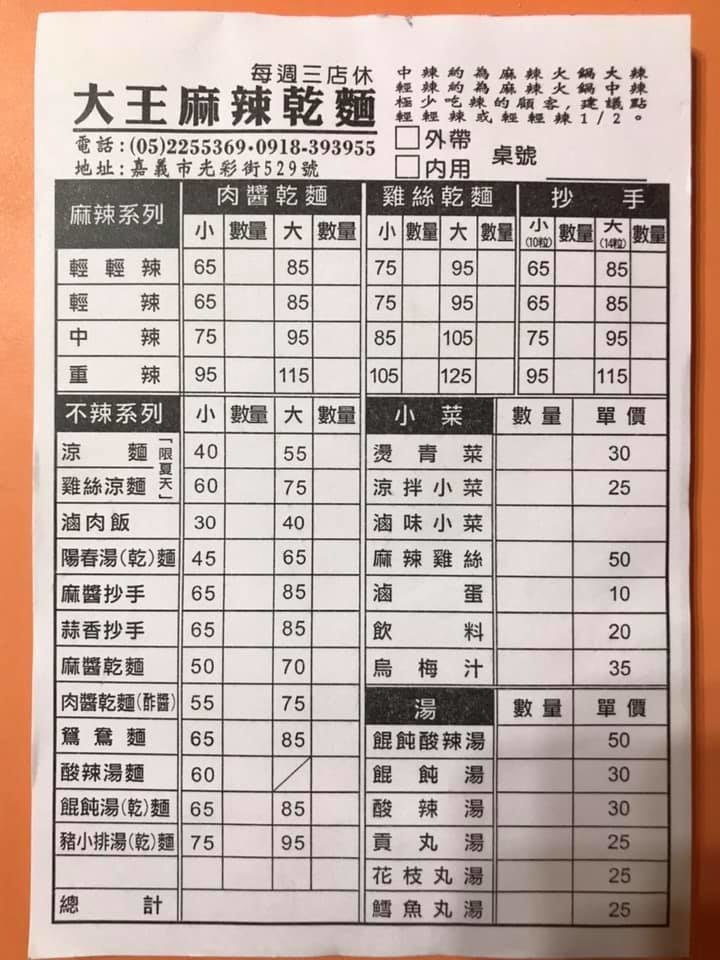 每週三店休
大王麻辣乾麵
電話:(05)2255369•0918-393955
地址:嘉義市光彩街529號
中辣約為麻辣火鍋大辣
輕辣約為麻辣火鍋中辣
極少吃辣的顧客,建議點
輕輕辣或輕輕辣1/2。
外帶
內用
桌號
麻辣系列 肉醬乾麵 雞絲乾麵 抄手
小 數量 大 數量 小 數量 大 數量 小(10粒) 數量 大(14粒) 數量
輕輕辣 65 85 75 95 65 85
輕辣 65 85 75 95 65 85
中辣 75 95 85 105 75 95
重辣 95 115 105 125 95 115
不辣系列 小 數量 大 數量
涼麵 「限夏天」 40 55
雞絲涼麵 60 75
滷肉飯 30 40
陽春湯(乾)麵 45 65
麻醬抄手 65 85
蒜香抄手 65 85
麻醬乾麵 50 70
肉醬乾麵(酢醬) 55 75
鴛鴦麵 65 85
酸辣湯麵 60
餛飩湯(乾)麵 65 85
豬小排湯(乾)麵 75 95
總計
小菜 數量 單價
燙青菜 30
涼拌小菜 25
滷味小菜
麻辣雞絲 50
滷蛋 10
飲料 20
烏梅汁 35
湯 數量 單價
餛飩酸辣湯 50
餛飩湯 30
酸辣湯 30
貢丸湯 25
花枝丸湯 25
鱈魚丸湯 25